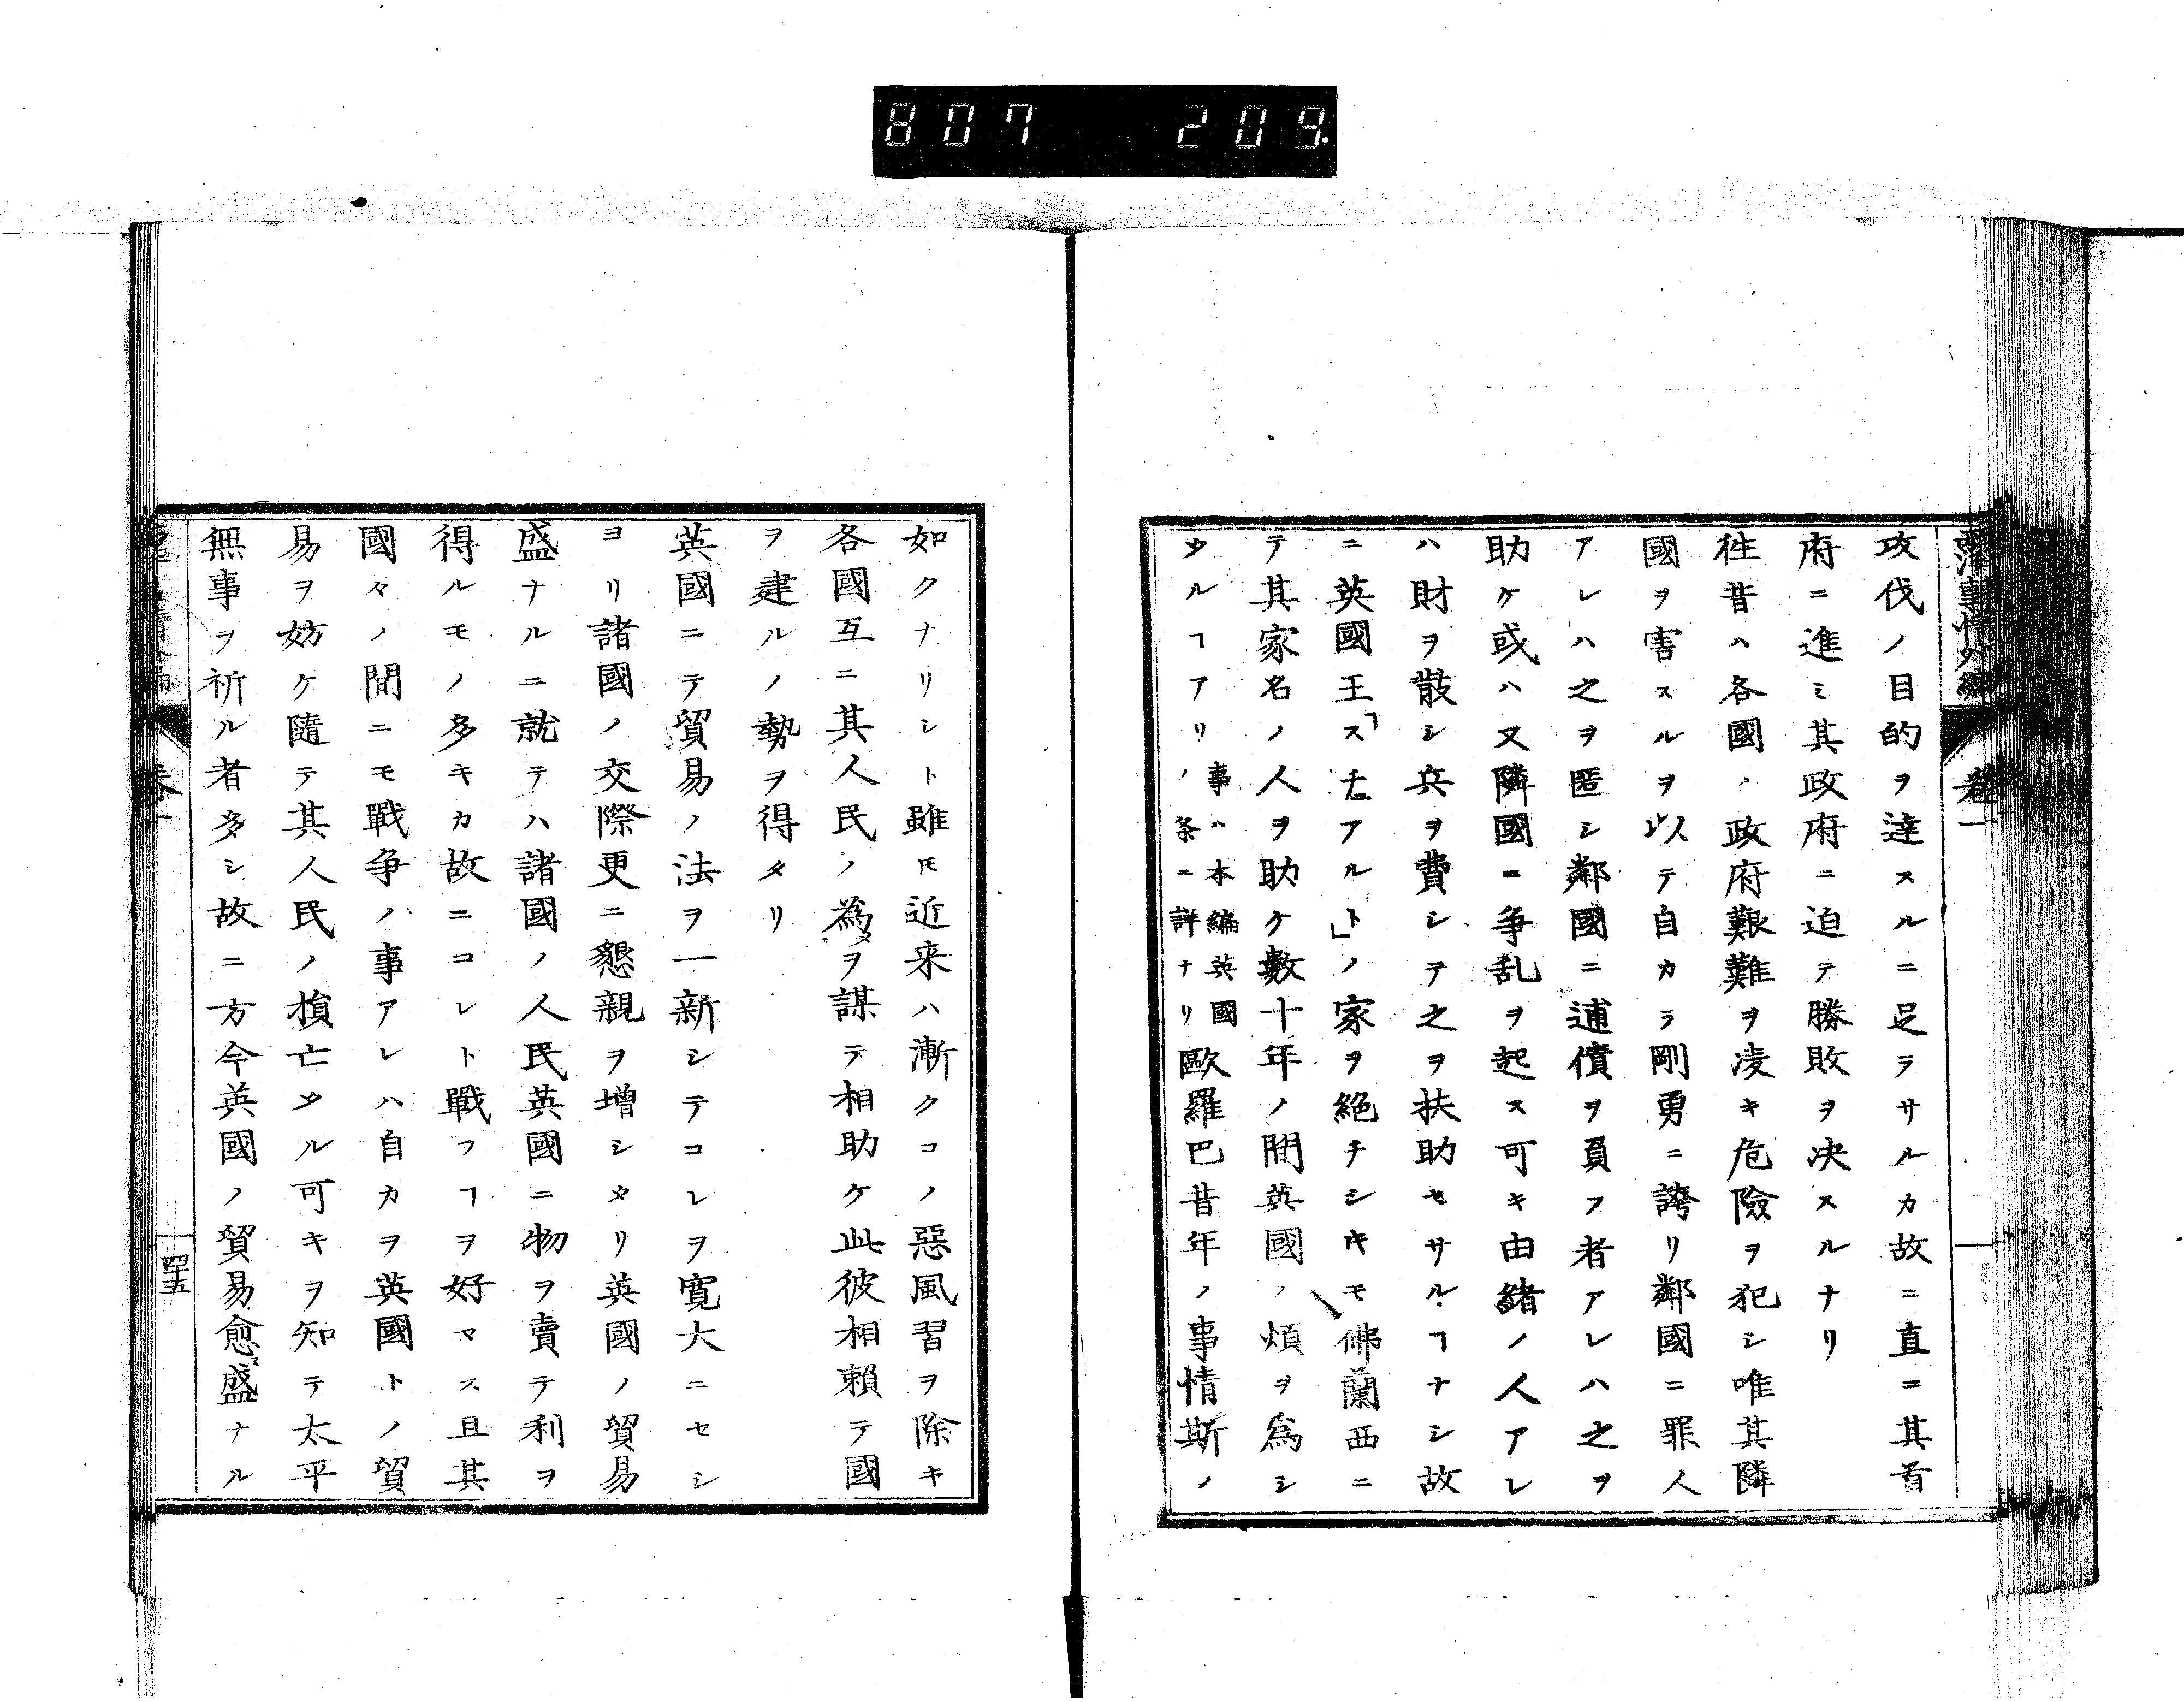 807 209.
西洋事情外編 卷一
攻伐ノ目的ヲ達スルニ足ラサルカ故ニ直ニ其首
府ニ進ミ其政府ニ迫テ勝敗ヲ决スルナリ
徃昔ハ各國ノ政府艱難ヲ凌キ危險ヲ犯シ唯其隣
國ヲ害スルヲ以テ自カラ剛勇ニ誇リ鄰國ニ罪人
アレハ之ヲ匿シ鄰國ニ逋債ヲ負フ者アレハ之ヲ
助ケ或ハ又隣國ニ争乱ヲ起ス可キ由緒ノ人アレ
ハ財ヲ散シ兵ヲ費シテ之ヲ扶助セサルヿナシ故
ニ英國王「スチアルト」ノ家ヲ絶チシキモ佛蘭西ニ
テ其家名ノ人ヲ助ケ數十年ノ間英國ノ煩ヲ爲シ
タルヿアリ事ハ本編英國ノ条ニ詳ナリ歐羅巴昔年ノ事情斯ノ
如クナリシト雖𪜈近来ハ漸クコノ惡風習ヲ除キ
各國互ニ其人民ノ為メヲ謀テ相助ケ此彼相賴テ國
ヲ建ルノ勢ヲ得タリ
英國ニテ貿易ノ法ヲ一新シテコレヲ寛大ニセシ
ヨリ諸國ノ交際更ニ懇親ヲ増シタリ英國ノ貿易
盛ナルニ就テハ諸國ノ人民英國ニ物ヲ賣テ利ヲ
得ルモノ多キカ故ニコレト戰フヿヲ好マス且其
國々ノ間ニモ戰争ノ事アレハ自カヲ英國トノ貿
易ヲ妨ケ隨テ其人民ノ損亡タル可キヲ知テ太平
無事ヲ祈ル者多シ故ニ方今英國ノ貿易愈盛ナル
四十五